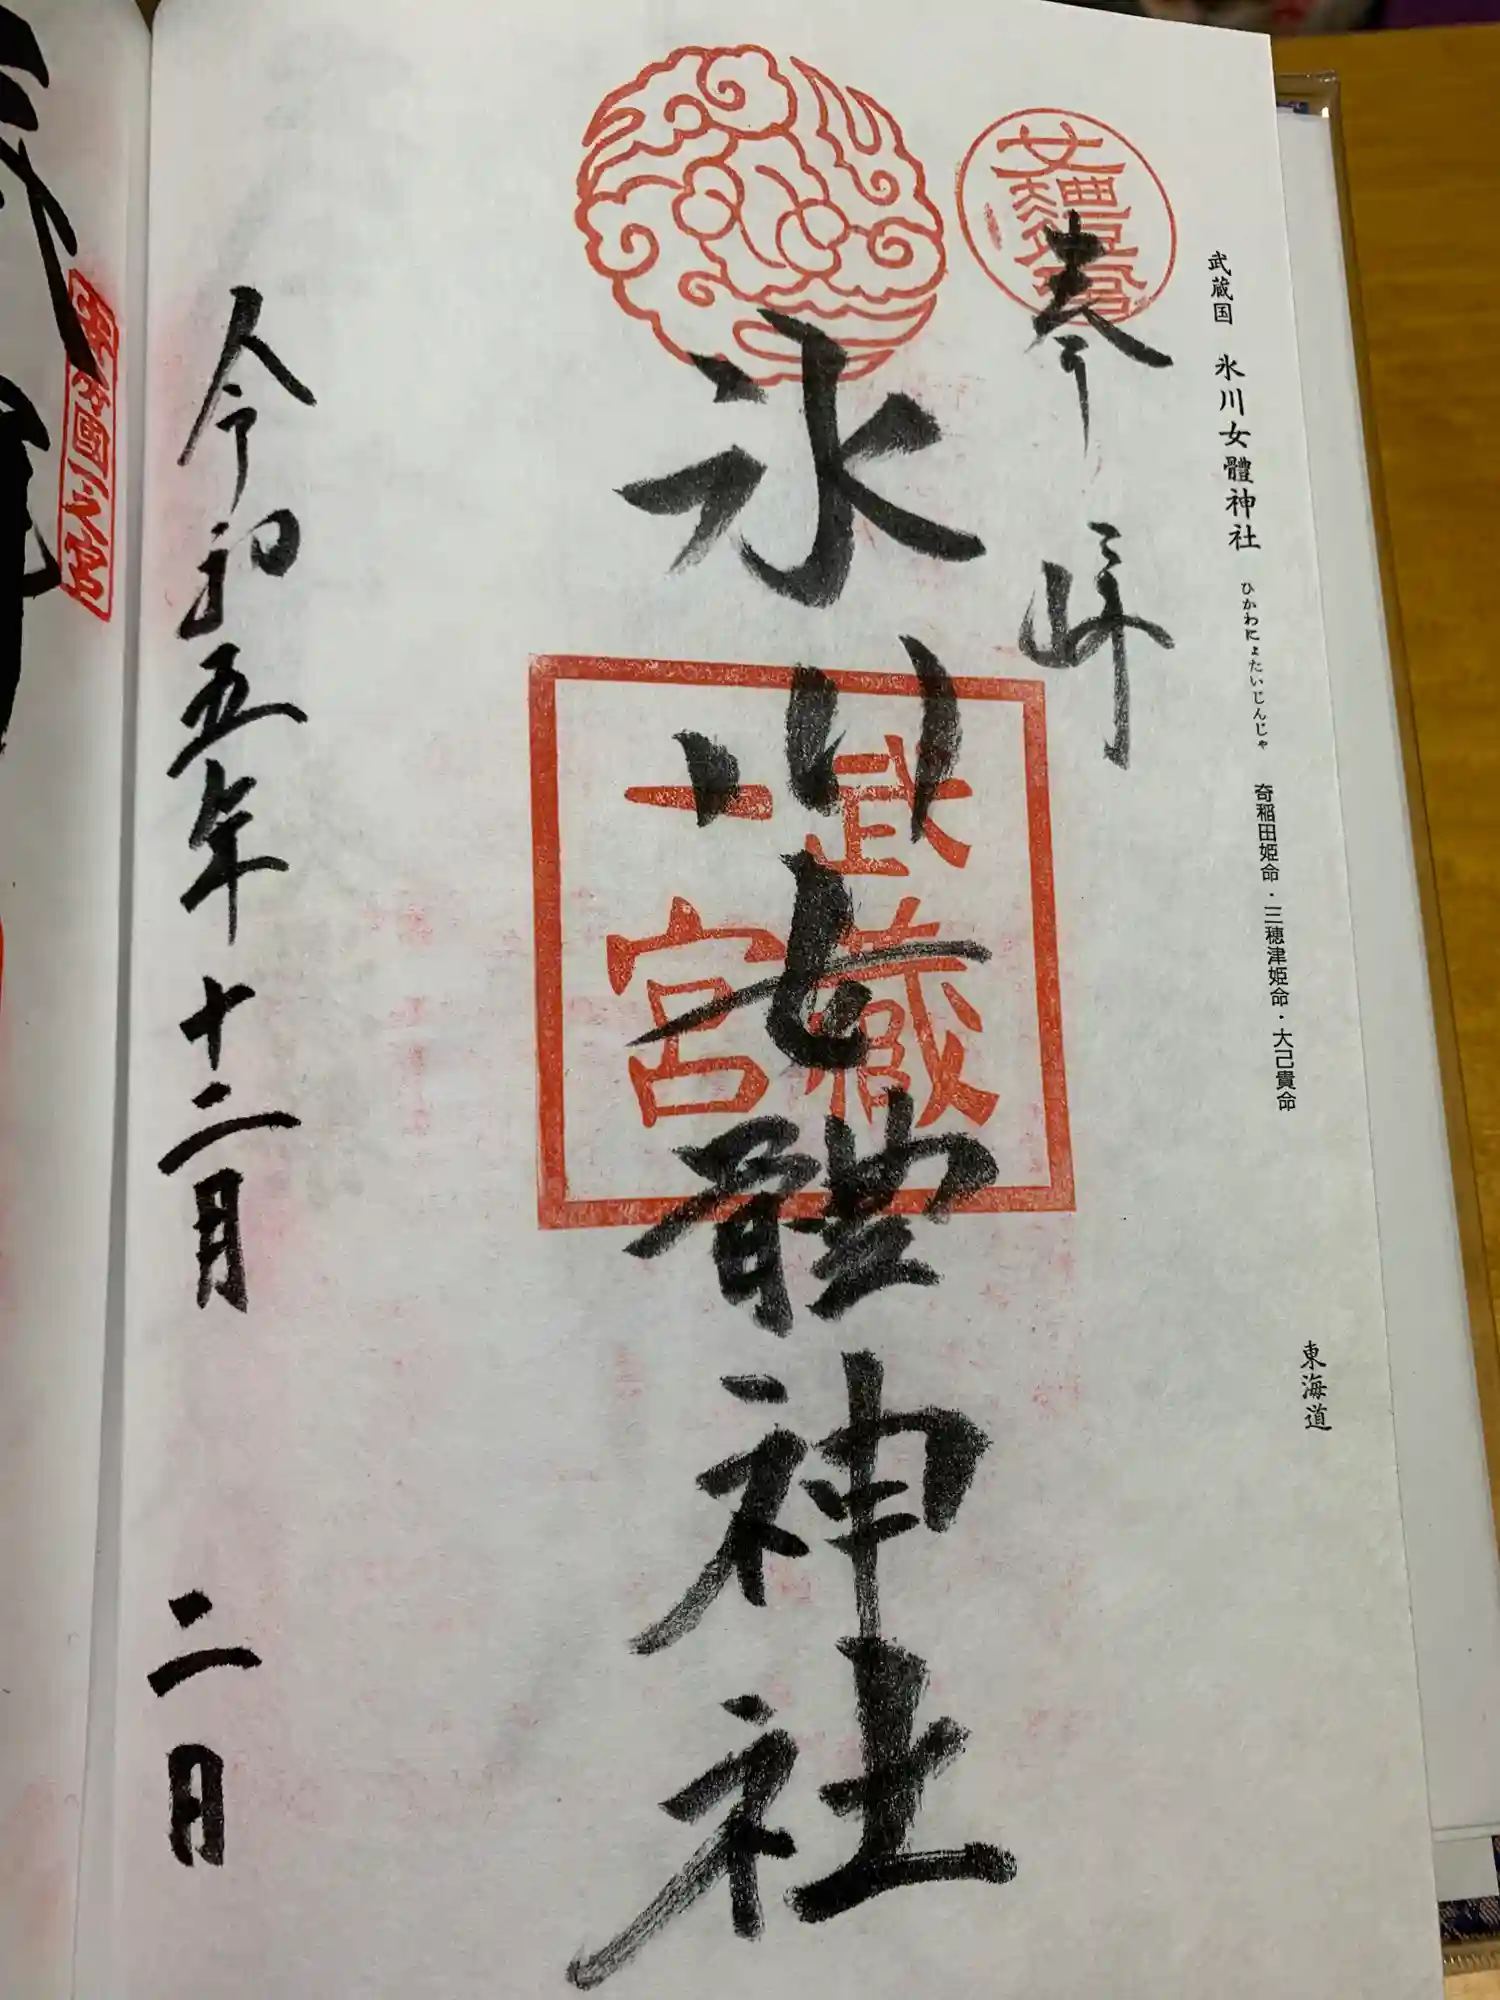 武蔵国 氷川女體神社 ひかわにょたいじんじゃ 奇稲田姫命・三穂津姫命・大己貴命
東海道
奉拝
氷川女體神社
武蔵
一宮
令和五年十二月 二日